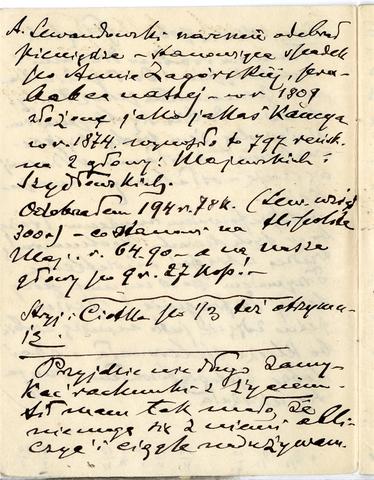 A. Lewandowski nareszcie odebrał
pieniądze – stanowiące spadek
po Annie Zagórskiej, pra-
babce naszej – w r 1809
złożone jako jakaś Kaucya
w r. 1874. wynosiło to 797 rubsr.
na 2 głowy: Majewskich i
Szydłowskich.
Odebrałem 194 r. 78 k. (Lew. wziął
300 r) – co stanowi na
Maj. r. 64.90 – a na nasze
głowy po 9 r. 27 kop! –
Stryj i Ciotka po 1/3 też otrzyma-
li.
Przyjdzie niedługo zamy-
kać rachunki z życiem –
sił mam tak mało, że
nie mogę się z niemi obli-
czyć i ciągle nadużywam.